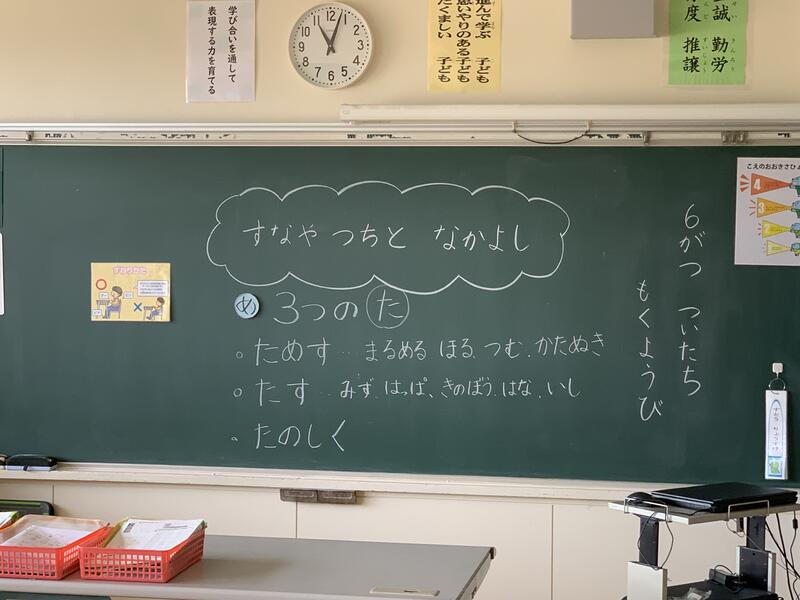 学び合いを通して
表現する力を育てる
12
1
2
3
4
5
6
7
8
9
10
11
進んで学ぶ 子ども
思いやりのある子ども
たくましい 子ども
誠 勤労
度 推譲
せい きんろう
すいじょう
こえのおおきさひょ
4
3
2
すわりかた
すなや つちと なかよし
め 3つの た
。ためす … まるめる ほる、つむ、かたぬき
。たす … みず、はっぱ、きのぼう、はな、いし
。たのしく
6がつ ついたち
もくようび